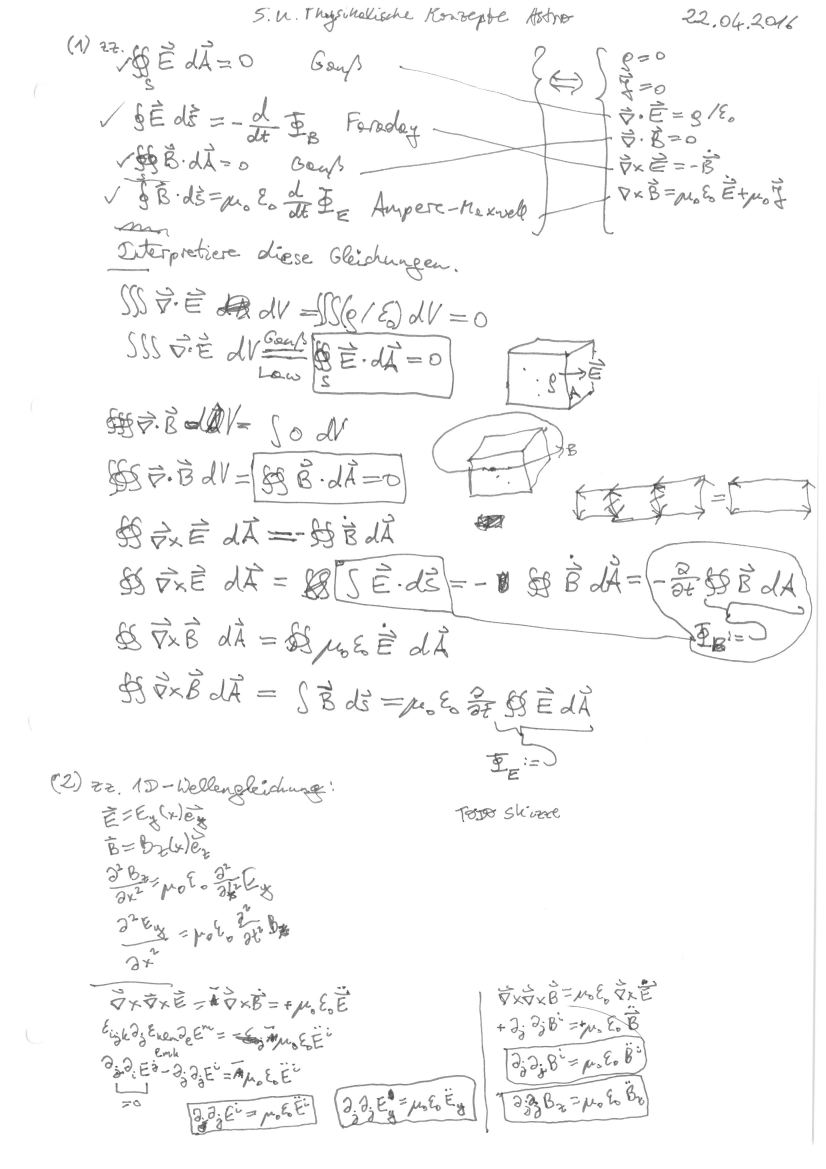 S. u. Physikalische Konzepte Astro 22.04.2016
(1) zz.
✓ ∯_S E⃗ dA⃗ = 0 Gauß
✓ ∮ E⃗ ds⃗ = - d/dt Φ_B Faraday
✓ ∯ B⃗ · dA⃗ = 0 Gauß
✓ ∮ B⃗ · ds⃗ = μ₀ ε₀ d/dt Φ_E Ampere-Maxwell
⇔
ρ = 0
j⃗ = 0
∇⃗ · E⃗ = ρ/ε₀
∇⃗ · B⃗ = 0
∇⃗ × E⃗ = -Ḃ⃗
∇⃗ × B⃗ = μ₀ ε₀ Ė⃗ + μ₀ j⃗
Interpretiere diese Gleichungen.
∭ ∇⃗ · E⃗ dV = ∭ (ρ/ε₀) dV = 0
∭ ∇⃗ · E⃗ dV = Gauß Law ∯_S E⃗ · dA⃗ = 0
ρ E⃗
A
∰ ∇⃗ · B⃗ dV = ∫ 0 dV
B
∰ ∇⃗ · B⃗ dV = ∯ B⃗ · dA⃗ = 0
=
∯ ∇⃗ × E⃗ dA⃗ = - ∯ Ḃ⃗ dA⃗
∯ ∇⃗ × E⃗ dA⃗ = ∫ E⃗ · ds⃗ = - ∯ Ḃ⃗ dA⃗ = - ∂/∂t ∯ B⃗ dA
Φ_B :=
∯ ∇⃗ × B⃗ dA⃗ = ∯ μ₀ ε₀ Ė⃗ dA⃗
∯ ∇⃗ × B⃗ dA⃗ = ∫ B⃗ ds⃗ = μ₀ ε₀ ∂/∂t ∯ E⃗ dA⃗
Φ_E :=
(2) zz. 1D-Wellengleichung:
E⃗ = E_y(x) e⃗_y
TODO Skizze
B⃗ = B_z(x) e⃗_z
∂²B_z/∂x² = μ₀ ε₀ ∂²/∂t² E_y
∂²E_y/∂x² = μ₀ ε₀ ∂²/∂t² B_z
∇⃗ × ∇⃗ × E⃗ = - ∇⃗ × Ḃ⃗ = + μ₀ ε₀ Ë⃗
ε_ijk ∂_j ε_klm ∂_l E^m = - μ₀ ε₀ Ë^i
∂_j ∂_i E^j - ∂_j ∂_j E^i = - μ₀ ε₀ Ë^i
= 0
∂_j ∂_j E^i = μ₀ ε₀ Ë^i
∂_j ∂_j E_y = μ₀ ε₀ Ë_y
∇⃗ × ∇⃗ × B⃗ = μ₀ ε₀ ∇⃗ × Ė⃗
+ ∂_j ∂_j B^i = + μ₀ ε₀ B̈
∂_j ∂_j B^i = μ₀ ε₀ B̈^i
∂_j ∂_j B_z = μ₀ ε₀ B̈_z